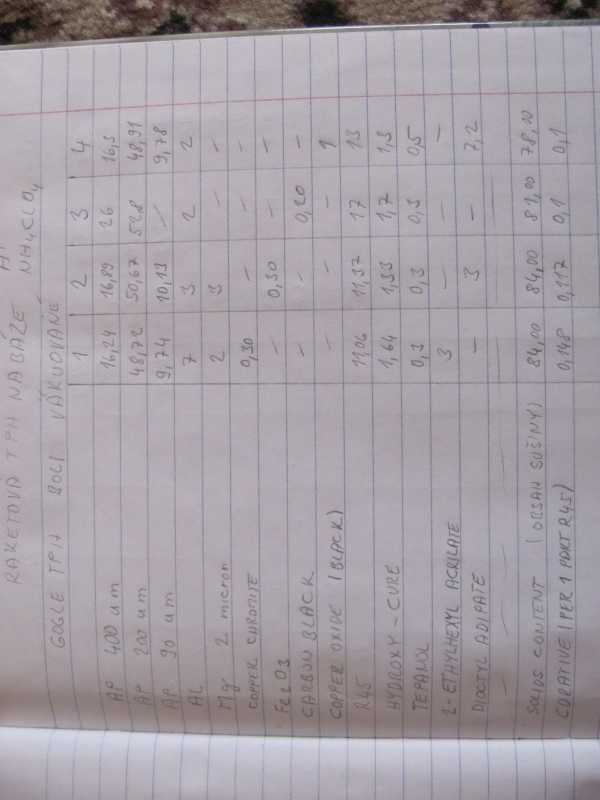 RAKETOVÁ TPH NA BÁZE NH4ClO4
GOGLE TPH BOLI VÁKUOVANÉ
1 2 3 4
AP 400 um 16,24 16,89 26 16,3
AP 200 um 48,72 50,67 52,8 48,91
AP 90 um 9,74 10,13 – 9,78
AL 7 3 2 2
Mg 2 micron 2 3 – –
COPPER CHROMITE 0,30 – – –
Fe2O3 – 0,30 – –
CARBON BLACK – – 0,20 –
COPPER OXIDE (BLACK) – – – 1
R45 11,06 11,37 17 13
HYDROXY – CURE 1,64 1,33 1,7 1,3
TEPANOL 0,3 0,3 0,3 0,5
2-ETHYLHEXYL ACRILATE 3 – – –
DIOCTYL ADIPATE – 3 – 7,2
SOLIDS CONTENT (OBSAH SUŠINY) 84,00 84,00 81,00 78,00
CORATIVE (PER 1 PART R45) 0,148 0,117 0,1 0,1